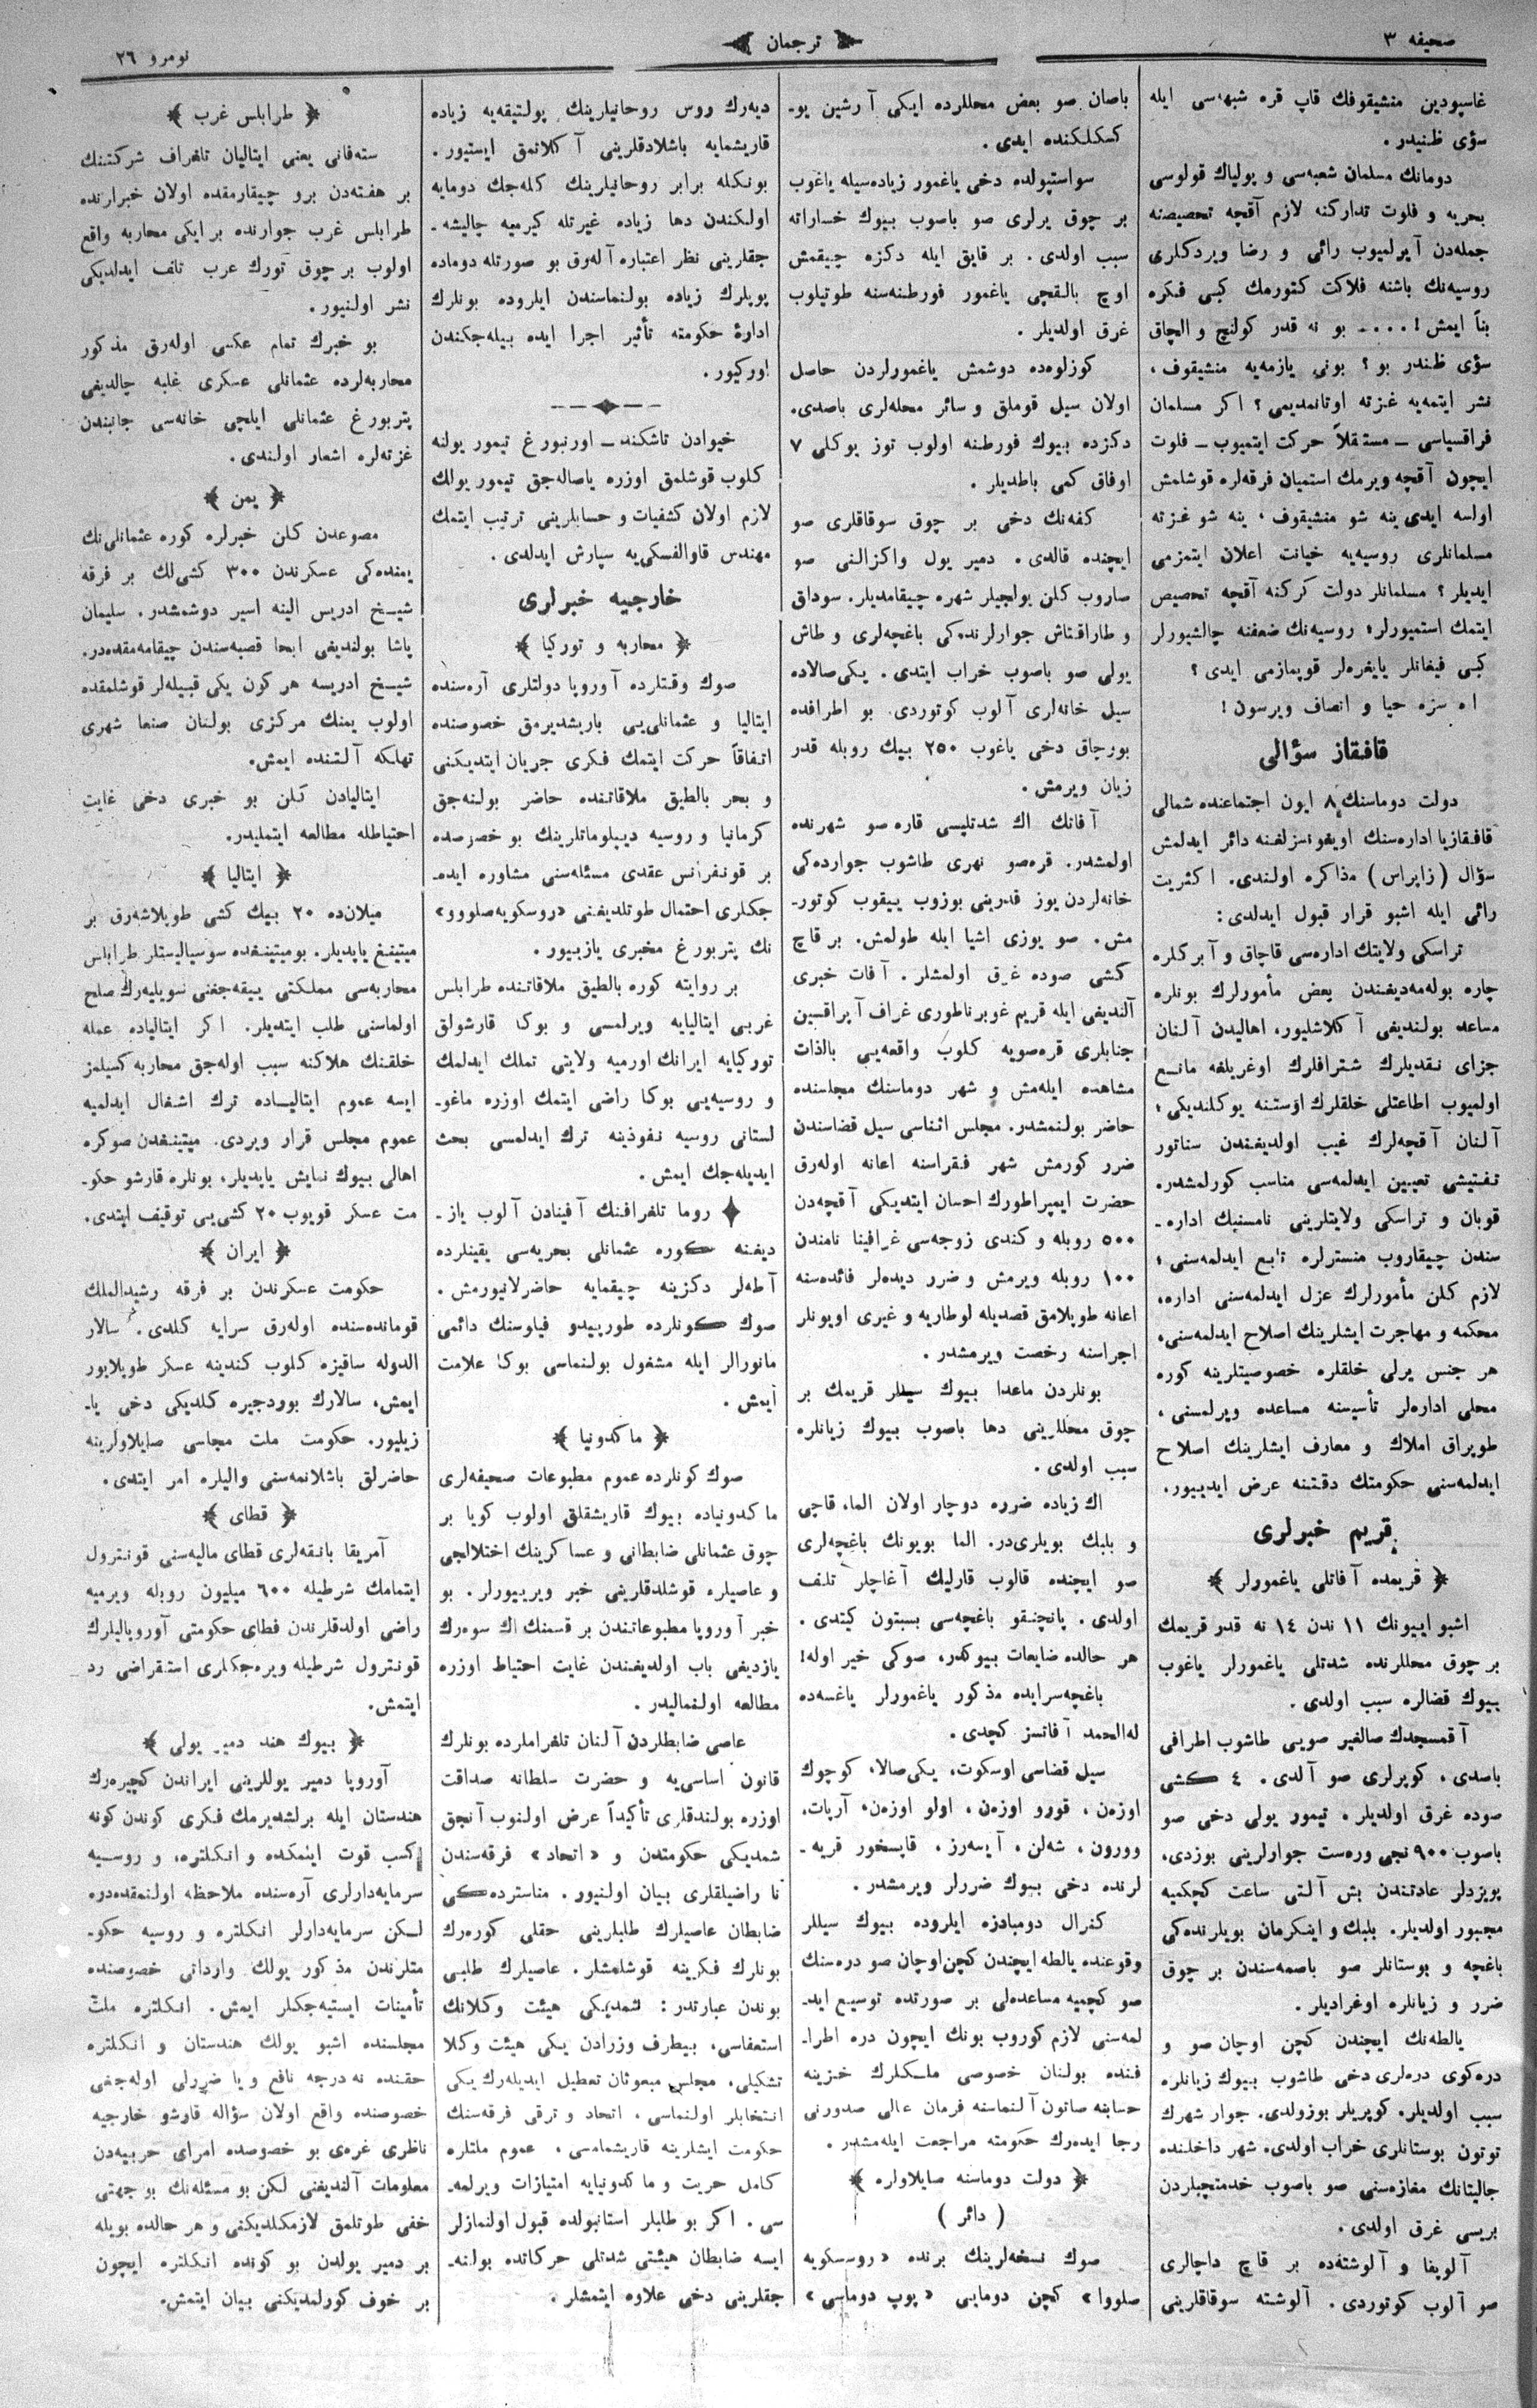 صحیفه ۳
ترجمان
نومرو ۲٦
غاسپودین منشیقوفك قاب قره شبهه‌سی ایله
سؤی ظنیدر.
دومانك مسلمان شعبه‌سی و پولیاك قولوسی
بحریه و فلوت تدارکنه لازم آقچه تحصیصنه
جمله‌دن آیرلمیوب رائی و رضا ویردکلری
روسیه‌نك باشنه فلاکت کتورمك کبی فکره
بنأ ایمش! .... بو نه قدر کولنج و الچاق
سؤی ظندر بو؟ بونی یازمه‌یه منشیقوف،
نشر ایتمه‌یه غزته اوتانمدیمی؟ اکر مسلمان
فراقسیاسی ــ مستقلاً حرکت ایتمیوب ــ فلوت
ایچون آقچه ویرمك استمیان فرقه‌لره قوشلمش
اولسه ایدی ینه شو منشیقوف، ینه شو غزته
مسلمانلری روسیه‌یه خیانت اعلان ایتمزمی
ایدیلر؟ مسلمانلر دولت کرکنه آقچه تحصیص
ایتمك استمیورلر، روسیه‌نك ضعفنه چالشیورلر
کبی فیغانلر یایغره‌لر قوپمازمی ایدی؟
اه سزه حیا و انصاف ویرسون!
قافقاز سؤالی
دولت دوماسنك ۸ ایون اجتماعنده شمالی
قافقازیا اداره‌سنك اویغونسزلغنه دائر ایدلمش
سؤال (زاپراس) مذاکره اولندی. اکثریت
رائی ایله اشبو قرار قبول ایدلدی:
تراسکی ولایتك اداره‌سی قاچاق و آبرکلره
چاره بوله‌مه‌دیغندن بعض مأمورلرك بونلره
مساعد بولندیغی آکلاشلیور، اهالیدن آلنان
جزای نقدیلرك شترافلرك اوغریلغه مانع
اولمیوب اطاعتلی خلقلرك اوستنه یوکلندیکی؛
آلنان آقچه‌لرك غیب اولدیغندن سناتور
تفتیشی تعیین ایدلمه‌سی مناسب کورلمشدر.
قوبان و تراسکی ولایتلرینی نامستیك اداره-
سندن چیقاروب منسترلره تابع ایدلمه‌سنی؛
لازم کلن مأمورلرك عزل ایدلمه‌سنی اداره،
محکمه و مهاجرت ایشلرینك اصلاح ایدلمه‌سنی،
هر جنس یرلی خلقلره خصوصیتلرینه کوره
محلی اداره‌لر تأسیسنه مساعده ویرلمسنی،
طوپراق املاك و معارف ایشلرینك اصلاح
ایدلمه‌سنی حکومتك دقتنه عرض ایدییور.
قریم خبرلری
قریمده آفاتلی یاغمورلر
اشبو اییونك ۱۱ ندن ۱٤ نه قدر قریمك
بر چوق محللرنده شدتلی یاغمورلر یاغوب
بیوك قضالره سبب اولدی.
آقمسجدك صالغیر صویی طاشوب اطرافی
باصدی، کوپرلری صو آلدی. ٤ کشی
صوده غرق اولدیلر. تیمور یولی دخی صو
باصوب ۹۰۰ نجی وره‌ست جوارلرینی بوزدی،
پویزدلر عادتندن بش آلتی ساعت کچکمیه
مجبور اولدیلر. بلبك و اینکرمان بویلرنده‌کی
باغچه و بوستانلر صو باصمه‌سندن بر چوق
ضرر و زیانلره اوغرادیلر.
یالطه‌نك ایچندن کچن اوچان صو و
دره‌کوی دره‌لری دخی طاشوب بیوك زیانلره
سبب اولدیلر. کوپریلر بوزولدی. جوار شهرك
توتون بوستانلری خراب اولدی. شهر داخلنده
جالیتانك مغازه‌سنی صو باصوب خدمتچیلردن
بریسی غرق اولدی.
آلوپقا و آلوشته‌ده بر قاچ داچالری
صو آلوب کوتوردی. آلوشته سوقاقلرینی
باصان صو بعض محللرده ایکی آرشین یو-
کسکلکنده ایدی.
سواستپولده دخی یاغمور زیاده‌سیله یاغوب
بر چوق یرلری صو باصوب بیوك خساراته
سبب اولدی. بر قایق ایله دکزه چیقمش
اوچ بالقچی یاغمور فورطنه‌سنه طوتیلوب
غرق اولدیلر.
کوزلوه‌ده دوشمش یاغمورلردن حاصل
اولان سیل قوملق و سائر محله‌لری باصدی.
دکزده بیوك فورطنه اولوب توز یوکلی ۷
اوفاق کمی باطدیلر.
کفه‌نك دخی بر چوق سوقاقلری صو
ایچنده قالدی. دمیر یول واکزالنی صو
صاروب کلن یولجیلر شهره چیقامدیلر. سوداق
و طاراقتاش جوارلرنده‌کی باغچه‌لری و طاش
یولی صو باصوب خراب ایتدی. یکی‌صالاده
سیل خانه‌لری آلوب کوتوردی. بو اطرافده
بورچاق دخی یاغوب ۲۵۰ بیك روبله قدر
زیان ویرمش.
آفاتك اك شدتلیسی قاره صو شهرنده
اولمشدر. قره‌صو نهری طاشوب جوارده‌کی
خانه‌لردن یوز قدرینی بوزوب ییقوب کوتور-
مش. صو یوزی اشیا ایله طولمش. بر قاچ
کشی صوده غرق اولمشلر. آفات خبری
آلندیغی ایله قریم غوبرناطوری غراف آپراقسین
جنابلری قره‌صویه کلوب واقعه‌یی بالذات
مشاهده ایله‌مش و شهر دوماسنك مجلسنده
حاضر بولنمشدر. مجلس اثناسی سیل قضاسندن
ضرر کورمش شهر فقراسنه اعانه اوله‌رق
حضرت ایمپراطورك احسان ایتدیکی آقچه‌دن
۵۰۰ روبله و کندی زوجه‌سی غرافینا نامندن
۱۰۰ روبله ویرمش و ضرر دیده‌لر فائده‌سنه
اعانه طوپلامق قصدیله لوطاریه و غیری اویونلر
اجراسنه رخصت ویرمشدر.
بونلردن ماعدا بیوك سیللر قریمك بر
چوق محللرینی دها باصوب بیوك زیانلره
سبب اولدی.
اك زیاده ضرره دوچار اولان الما، قاچی
و بلبك بویلری‌در. الما بویونك باغچه‌لری
صو ایچنده قالوب قارلیك آغاچلر تلف
اولدی. پانچنقو باغچه‌سی بسبتون کیتدی.
هر حالده ضایعات بیوکدر، صوکی خیر اوله!
باغچه‌سرایده مذکور یاغمورلر یاغسه‌ده
له‌الحمد آفاتسز کچدی.
سیل قضاسی اوسکوت، یکی‌صالا، کوچوك
اوزه‌ن، قورو اوزه‌ن، اولو اوزه‌ن، آرپات،
وورون، شه‌لن، آیسه‌رز، قاپسخور قریه-
لرنده دخی بیوك ضررلر ویرمشدر.
کنرال دومبادزه ایلروده بیوك سیللر
وقوعنده یالطه ایچندن کچن اوچان صو دره‌سنك
صو کچمیه مساعده‌لی بر صورتده توسیع اید-
لمه‌سنی لازم کوروب بونك ایچون دره اطرا-
فنده بولنان خصوصی ملکلرك خزینه
حسابنه صاتون آلنماسنه فرمان عالی صدورنی
رجا ایده‌رك حکومته مراجعت ایله‌مشدر.
دولت دوماسنه صایلاولره
(دائر)
صوك نسخه‌لرینك برنده «روسسکویه
صلووا» کچن دومایی «پوپ دوماسی»
دیه‌رك روس روحانیلرینك پولتیقه‌یه زیاده
قاریشمایه باشلادقلرینی آکلاتمق ایستیور.
بونکله برابر روحانیلرینك کله‌جك دومایه
اولکندن دها زیاده غیرتله کیرمیه چالیشه-
جقلرینی نظر اعتباره آله‌رق بو صورتله دوماده
پوپلرك زیاده بولنماسندن ایلروده بونلرك
ادارهٔ حکومته تأثیر اجرا ایده بیله‌جکندن
اورکیور.
خیوادن تاشکند ــ اورنبورغ تیمور یولنه
کلوب قوشلمق اوزره یاصاله‌جق تیمور یولك
لازم اولان کشفیات و حسابلرینی ترتیب ایتمك
مهندس قاوالفسکی‌یه سپارش ایدلدی.
خارجیه خبرلری
محاربه و تورکیا
صوك وقتلرده آوروپا دولتلری آره‌سنده
ایتالیا و عثمانلی‌یی باریشدیرمق خصوصنده
اتفاقاً حرکت ایتمك فکری جریان ایتدیکنی
و بحر بالطیق ملاقاتنده حاضر بولنه‌جق
کرمانیا و روسیه دیپلوماتلرینك بو خصوصده
بر قونفرانس عقدی مسئله‌سنی مشاوره ایده-
جکلری احتمال طوتلدیغنی «روسکویه‌صلووو»
نك پتربورغ مخبری یازییور.
بر روایته کوره بالطیق ملاقاتنده طرابلس
غربی ایتالیایه ویرلمسی و بوکا قارشولق
تورکیایه ایرانك اورمیه ولایتی تملك ایدلمك
و روسیه‌یی بوکا راضی ایتمك اوزره ماغو-
لستانی روسیه نفوذینه ترك ایدلمسی بحث
ایدیله‌جك ایمش.
روما تلغرافنك آفینادن آلوب یاز-
دیغنه کوره عثمانلی بحریه‌سی یقینلرده
آطه‌لر دکزینه چیقمایه حاضرلانیورمش.
صوك کونلرده طورپیدو فیلوسنك دائمی
مانورالر ایله مشغول بولنماسی بوکا علامت
ایمش.
ماکدونیا
صوك کونلرده عموم مطبوعات صحیفه‌لری
ماکدونیاده بیوك قاریشقلق اولوب کویا بر
چوق عثمانلی ضابطانی و عساکرینك اختلالجی
و عاصیلره قوشلدقلرینی خبر ویرییورلر. بو
خبر آوروپا مطبوعاتندن بر قسمنك اك سوه‌رك
یازدیغی باب اولدیغندن غایت احتیاط اوزره
مطالعه اولنمالیدر.
عاصی ضابطلردن آلنان تلغراملرده بونلرك
قانون اساسی‌یه و حضرت سلطانه صداقت
اوزره بولندقلری تأکیداً عرض اولنوب آنجق
شمدیکی حکومتدن و «اتحاد» فرقه‌سندن
نا راضیلقلری بیان اولنیور. مناسترده‌کی
ضابطان عاصیلرك طلبلرینی حقلی کوره‌رك
بونلرك فکرینه قوشلمشلر. عاصیلرك طلبی
بوندن عبارتدر: شمدیکی هیئت وکلانك
استعفاسی، بیطرف وزرادن یکی هیئت وکلا
تشکیلی، مجلس مبعوثان تعطیل ایدیله‌رك یکی
انتخابلر اولنماسی، اتحاد و ترقی فرقه‌سنك
حکومت ایشلرینه قاریشمامسی، عموم ملتلره
کامل حریت و ماکدونیایه امتیازات ویرلمه-
سی. اکر بو طلبلر استانبولده قبول اولنمازلر
ایسه ضابطان هیئتی شدتلی حرکاتده بولنه-
جقلرینی دخی علاوه ایتمشلر.
طرابلس غرب
سته‌فانی یعنی ایتالیان تلغراف شرکتنك
بر هفته‌دن برو چیقارمقده اولان خبرلرنده
طرابلس غرب جوارنده بر ایکی محاربه واقع
اولوب بر چوق تورك عرب تلف ایدلدیکی
نشر اولنیور.
بو خبرك تمام عکسی اوله‌رق مذکور
محاربه‌لرده عثمانلی عسکری غلبه چالدیغی
پتربورغ عثمانلی ایلچی خانه‌سی جانبندن
غزته‌لره اشعار اولندی.
یمن
مصوعدن کلن خبرلره کوره عثمانلی‌نك
یمنده‌کی عسکرندن ۳۰۰ کشی‌لك بر فرقه
شیخ ادریس الینه اسیر دوشمشدر. سلیمان
پاشا بولندیغی ابحا قصبه‌سندن چیقامه‌مقده‌در.
شیخ ادریسه هر کون یکی قبیله‌لر قوشلمقده
اولوب یمنك مرکزی بولنان صنعا شهری
تهلکه آلتنده ایمش.
ایتالیادن کلن بو خبری دخی غایت
احتیاطله مطالعه ایتملیدر.
ایتالیا
میلان‌ده ۲۰ بیك کشی طوپلاشه‌رق بر
میتینغ یاپدیلر. بو میتینغده سوسیالیستلر طرابلس
محاربه‌سی مملکتی ییقه‌جغنی سویلیه‌رك صلح
اولماسنی طلب ایتدیلر. اکر ایتالیاده عمله
خلقنك هلاکنه سبب اوله‌جق محاربه کسیلمز
ایسه عموم ایتالیاده ترك اشغال ایدلمیه
عموم مجلس قرار ویردی. میتینغدن صوکره
اهالی بیوك نمایش یاپدیلر، بونلره قارشو حکو-
مت عسکر قویوب ۲۰ کشی‌یی توقیف ایتدی.
ایران
حکومت عسکرندن بر فرقه رشیدالملك
قوماندهسنده اوله‌رق سرایه کلدی. سالار
الدوله ساقیزه کلوب کندینه عسکر طوپلایور
ایمش، سالارك بروجیره کلدیکی دخی یا-
زیلیور. حکومت ملت مجلسی صایلاولرینه
حاضرلق باشلانمه‌سنی والیلره امر ایتدی.
قطای
آمریقا بانقه‌لری قطای مالیه‌سنی قونترول
ایتمامك شرطیله ٦۰۰ میلیون روبله ویرمیه
راضی اولدقلرندن قطای حکومتی آوروپالیلرك
قونترول شرطیله ویره‌جکلری استقراضی رد
ایتمش.
بیوك هند دمیر یولی
آوروپا دمیر یوللرینی ایراندن کچیره‌رك
هندستان ایله برلشدیرمك فکری کوندن کونه
کسب قوت ایتمکده و انکلتره، و روسیه
سرمایه‌دارلری آره‌سنده ملاحظه اولنمقده‌در.
لکن سرمایه‌دارلر انکلتره و روسیه حکو-
متلرندن مذکور یولك وارداتی خصوصنده
تأمینات ایستیه‌جکلر ایمش. انکلتره ملت
مجلسنده اشبو یولك هندستان و انکلتره
حقنده نه درجه نافع و یا ضررلی اوله‌جغی
خصوصنده واقع اولان سؤاله قارشو خارجیه
ناظری غره‌ی بو خصوصده امرای حربیه‌دن
معلومات آلندیغنی لکن بو مسئله‌نك بو جهتی
خفی طوتلمق لازمکلدیکنی و هر حالده بویله
بر دمیر یولدن بو کونده انکلتره ایچون
بر خوف کورلمدیکنی بیان ایتمش.